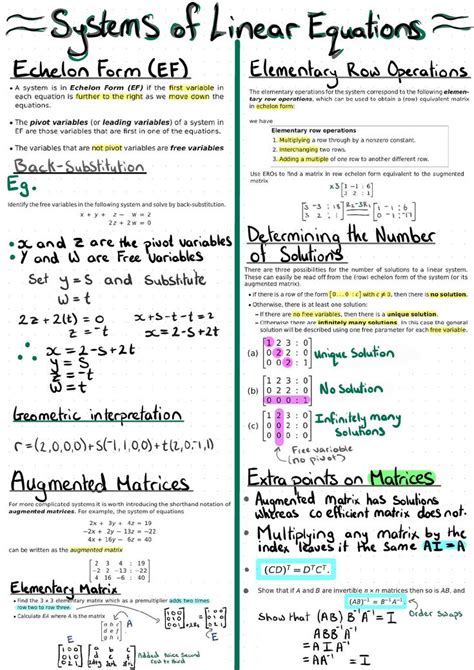 Systems of Linear Equations
Echelon Form (EF)
• A system is in Echelon Form (EF) if the first variable in
each equation is further to the right as we move down the
equations.
• The pivot variables (or leading variables) of a system in
EF are those variables that are first in one of the equations.
• The variables that are not pivot variables are free variables
Back-Substitution
Eg.
Identify the free variables in the following system and solve by back-substitution.
x + y + z − w = 2
2z + 2w = 0
• x and z are the pivot variables
• Y and W are Free Variables
Set y = S and Substitute
w = t
2z + 2(t) = 0
z = -t
x + s - t - t = 2
x = 2 - s + 2t
∴ x = 2 - s + 2t
y = S
z = -t
w = t
Geometric interpretation
r = (2,0,0,0) + S(-1,1,0,0) + t(2,0,-1,1)
Augmented Matrices
For more complicated systems it is worth introducing the shorthand notation of
augmented matrices. For example, the system of equations
2x + 3y + 4z = 19
−2x + 2y − 13z = −22
4x + 16y − 6z = 40
can be written as the augmented matrix
2 3 4 : 19
-2 2 -13 : -22
4 16 -6 : 40
Elementary Matrix
• Find the 3 × 3 elementary matrix which as a premultiplier adds two times
row two to row three.
• Calculate EA where A is the matrix
a b c
d e f
g h i
E
A
E
Added twice Second
row to third
Elementary Row Operations
The elementary operations for the system correspond to the following elemen-
tary row operations, which can be used to obtain a (row) equivalent matrix
in echelon form:
we have
Elementary row operations
1. Multiplying a row through by a nonzero constant.
2. Interchanging two rows.
3. Adding a multiple of one row to another different row.
Use EROs to find a matrix in row echelon form equivalent to the augmented
matrix
x3 [ 1 -1 : 6
3 2 : 1 ]
[ 3 -3 : 18
3 2 : 1 ] R2-3R1 [ 1 -1 : 6
0 5 : -17 ]
Determining the Number
of Solutions
There are three possibilities for the number of solutions to a linear system.
These can easily be read off from the (row) echelon form of the system (or its
augmented matrix).
• If there is a row of the form [0...0 : c] with c ≠ 0, then there is no solution.
• Otherwise, there is at least one solution:
• If there are no free variables, then there is a unique solution.
• Otherwise there are infinitely many solutions. In this case the general
solution will be described using one free parameter for each free variable.
(a) [ 1 2 3 : 0
0 2 2 : 0
0 0 3 : 0 ] Unique Solution
(b) [ 1 2 3 : 0
0 2 2 : 0
0 0 0 : 1 ] No Solution
(c) [ 1 2 3 : 0
0 2 2 : 0
0 0 0 : 0 ] Infinitely many
Solutions
Free variable
(no pivot)
Extra points on Matrices
• Augmented Matrix has Solutions
whereas co efficient matrix does not.
• Multiplying any matrix by the
index leaves it the same AI = A
• (CD)ᵀ = DᵀCᵀ.
• Show that if A and B are invertible n × n matrices then so is AB, and
(AB)⁻¹ = B⁻¹A⁻¹
Order Swaps
Show that (AB) B⁻¹A⁻¹ = I
ABB⁻¹A⁻¹
= AIA⁻¹
= AA⁻¹ = I